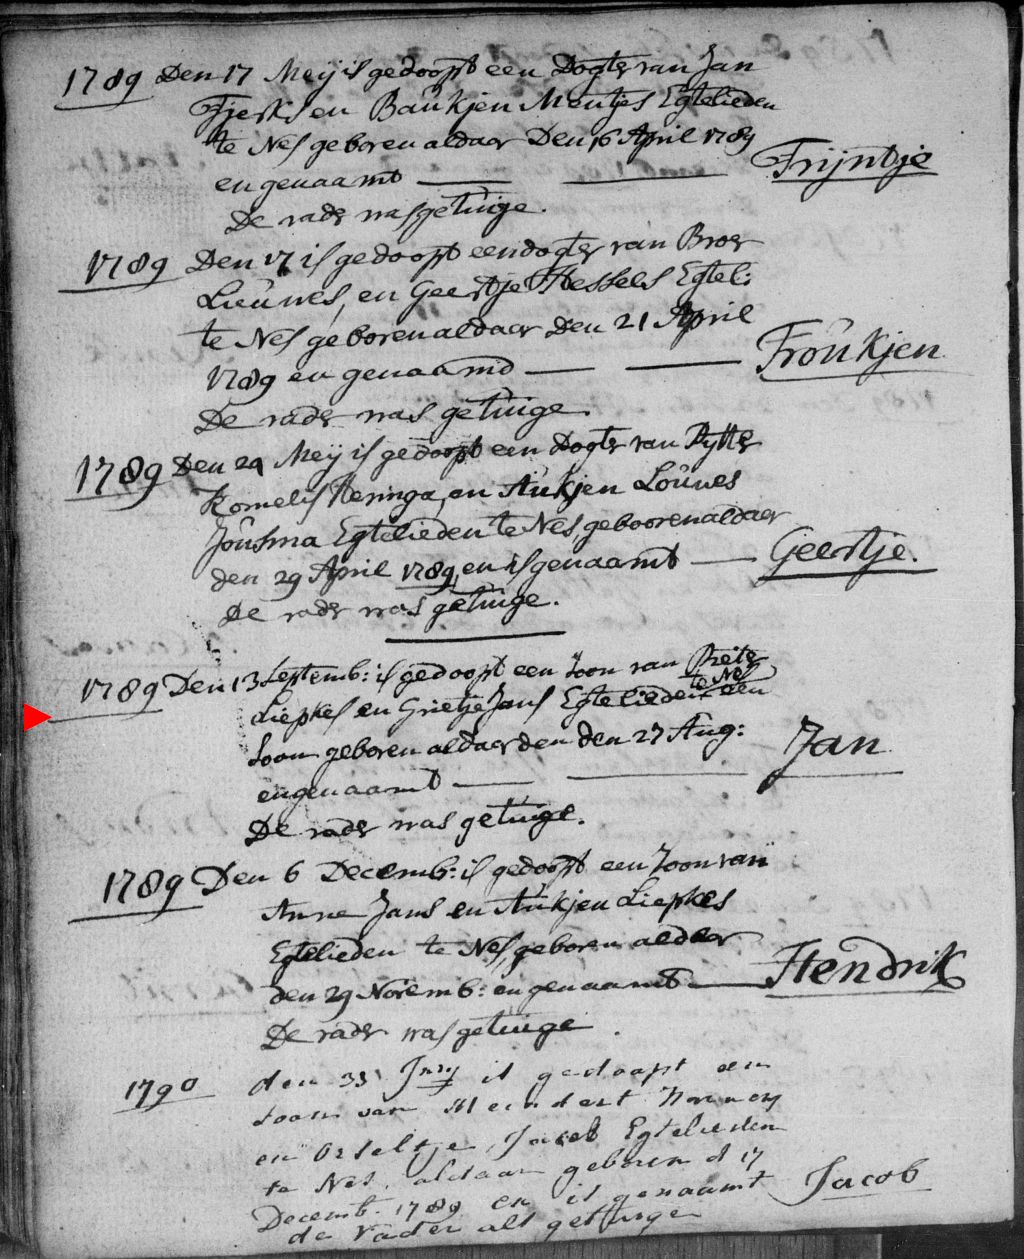 1789 Den 17 Meij is gedoopt een Dogter van Jan
Tjerks en Baukjen Mentjes Egtelieden
te Nes geboren aldaer Den 16 April 1789
en genaamt — — Trijntje
De vader was getuige.
1789 Den 17 is gedoopt een dogter van Broer
Lieuwes, en Geertje Hessels Egtel:
te Nes geboren aldaer Den 21 April
1789 en genaamd — — Froukjen
De vader was getuige.
1789 Den 24 Meij is gedoopt een Dogter van Rytter
Kornelis Heringa, en Aukjen Louwes
Jousma Egtelieden te Nes, geboorenaldaer
den 29 April 1789, en is genaamt — Geertje.
De vader was getuige.
1789 Den 13 Septemb: is gedoopt een zoon van Pieter
Liepkes en Grietje Jans Egtelieden te Nes een
soon geboren aldaer den den 27 Aug:
en genaamt — — Jan
De vader was getuige.
1789 Den 6 Decemb: is gedoopt een Zoon van
Anne Jans en Aukjen Liepkes
Egtelieden te Nes, geboren aldaer
den 29 Novemb: en genaamt — Hendrik
De vader was getuige.
1790 den 31 Jnry is gedoopt een
soon van Meindert
en Jacob Egtelieden
te Nes, aldaar geboren d 17
Decemb. 1789 en is genaamt Jacob
de Vader als getuige